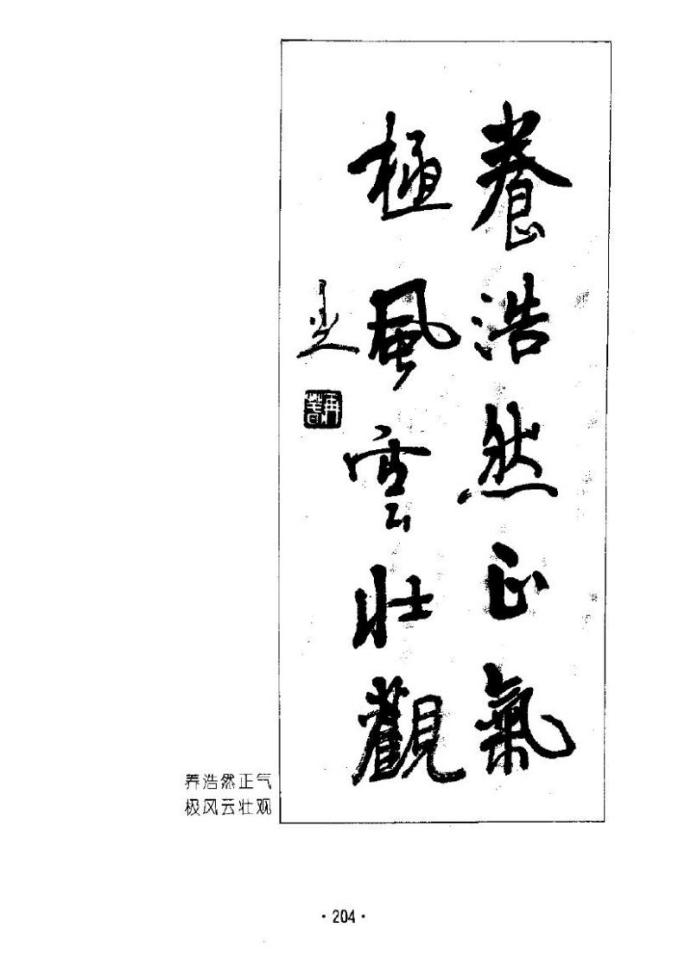 養浩然正氣
極風雲壯觀
养浩然正气
极风云壮观
·204·